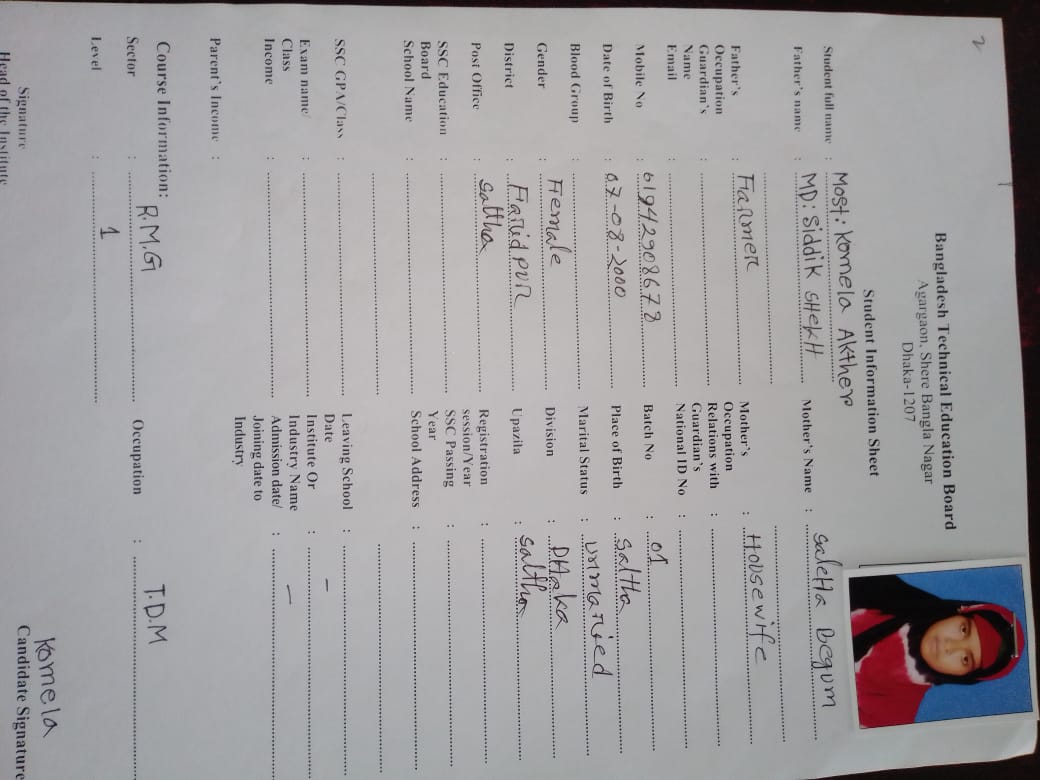 2
Bangladesh Technical Education Board
Agargaon, Shere Bangla Nagar
Dhaka-1207
Student Information Sheet
Student full name : Most: Komela Akther
Father's name : MD: Siddik SHekH Mother's Name : SaleHa Begum
Father's Occupation : Farmer Mother's Occupation : Housewife
Guardian's Name : Relations with Guardian's :
Email : National ID No :
Mobile No : 01942908678 Batch No : 01
Date of Birth : 07-08-2000 Place of Birth : Saltha
Blood Group : Marital Status : unmaried
Gender : Female Division : DHaka
District : Faridpur Upazila : Saltha
Post Office : Saltha Registration session/Year :
SSC Education Board : SSC Passing Year :
School Name : School Address :
SSC GPA/Class : Leaving School Date :
Exam name/ Class : Institute Or Industry Name : –
Income : Admission date/ Joining date to Industry : —
Parent's Income :
Course Information:
Sector : R.M.G Occupation : T.D.M
Level : 1
Komela
Signature Candidate Signature
Head of the Institute